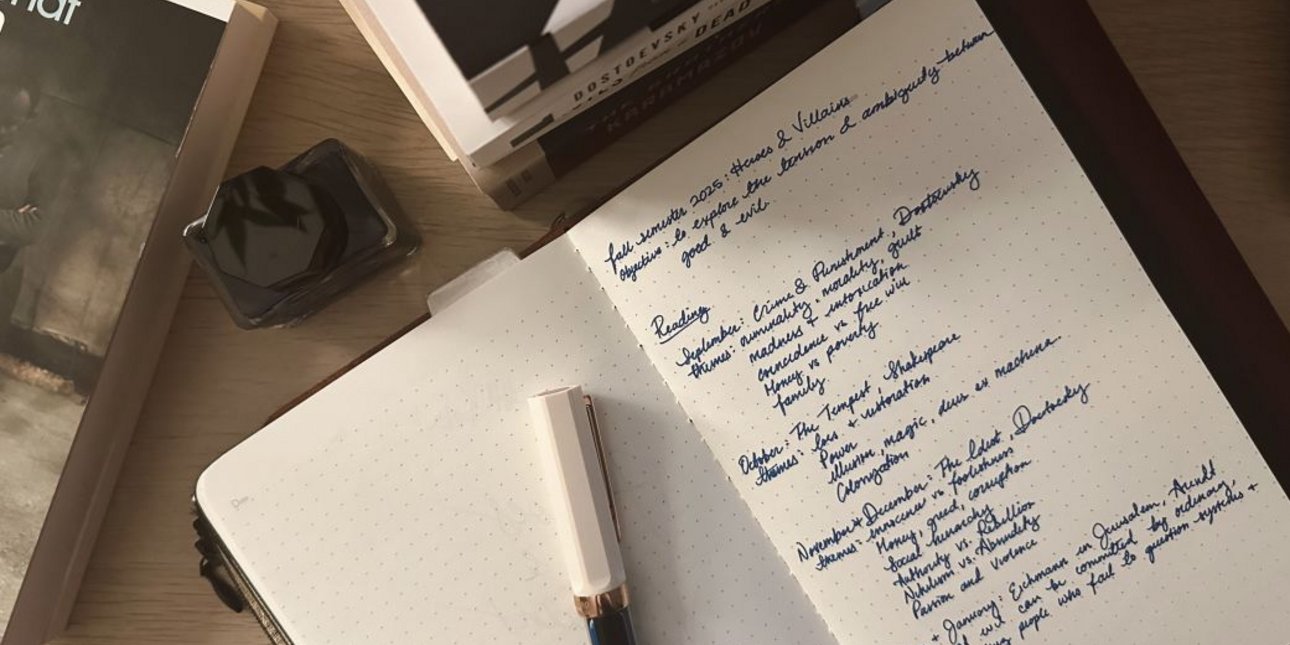 DOSTOEVSKY
DEAD
KARAMAZOV
fall semester 2025: Heroes & Villains
Objective: to explore the tension & ambiguity between
good & evil.
Reading
September: Crime & Punishment, Dostoevsky
themes: criminality, morality, guilt
madness + intoxication
coincidence vs free will
Money vs poverty
family
October: The Tempest, Shakespeare
themes: loss + restoration
Power
illusion, magic, deus ex machina
Colonization
November + December: The Idiot, Dostoevsky
themes: innocence vs foolishness
Money, greed, corruption
Social hierarchy
Authority vs. Rebellion
Nihilism vs. Absurdity
Passion and violence
+ January: Eichmann in Jerusalem, Arendt
evil can be committed by ordinary,
people who fail to question systems +